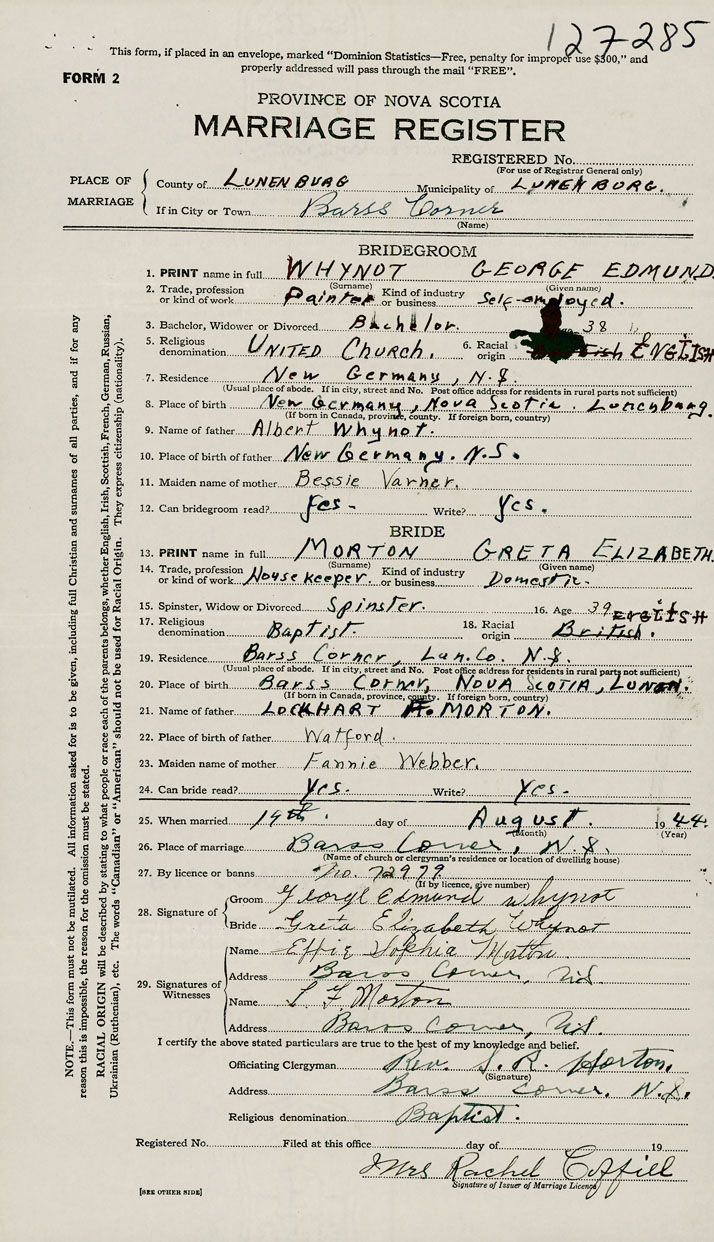 127285
This form, if placed in an envelope, marked "Dominion Statistics—Free, penalty for improper use $300," and
properly addressed will pass through the mail "FREE".
FORM 2
PROVINCE OF NOVA SCOTIA
MARRIAGE REGISTER
REGISTERED No.
(For use of Registrar General only)
PLACE OF MARRIAGE
County of LUNENBURG Municipality of LUNENBURG.
If in City or Town Barss Corner
(Name)
BRIDEGROOM
1. PRINT name in full WHYNOT GEORGE EDMUND
(Surname) (Given name)
2. Trade, profession or kind of work Painter Kind of industry or business Self-employed.
3. Bachelor, Widower or Divorced Bachelor. 38
5. Religious denomination UNITED CHURCH. 6. Racial origin ENGLISH
7. Residence New Germany, N.S.
(Usual place of abode. If in city, street and No. Post office address for residents in rural parts not sufficient)
8. Place of birth New Germany, Nova Scotia. Lunenburg.
(If born in Canada, province, county. If foreign born, country)
9. Name of father Albert Whynot.
10. Place of birth of father New Germany. N.S.
11. Maiden name of mother Bessie Varner.
12. Can bridegroom read? Yes- Write? Yes.
BRIDE
13. PRINT name in full MORTON GRETA ELIZABETH.
(Surname) (Given name)
14. Trade, profession or kind of work Housekeeper. Kind of industry or business Domestic.
15. Spinster, Widow or Divorced Spinster. 16. Age 39
17. Religious denomination Baptist. 18. Racial origin British. ENGLISH
19. Residence Barss Corner, Lun. Co. N.S.
(Usual place of abode. If in city, street and No. Post office address for residents in rural parts not sufficient)
20. Place of birth Barss Corner, NOVA SCOTIA, LUNEN.
(If born in Canada, province, county. If foreign born, country)
21. Name of father LOCKHART MORTON.
22. Place of birth of father Watford.
23. Maiden name of mother Fannie Webber.
24. Can bride read? Yes. Write? Yes.
25. When married 19th. day of August. 1944.
(Month) (Year)
26. Place of marriage Barss Corner, N.S.
(Name of church or clergyman's residence or location of dwelling house)
27. By licence or banns No. 72979
(If by licence, give number)
28. Signature of
Groom George Edmund Whynot
Bride Greta Elizabeth Whynot
29. Signatures of Witnesses
Name Effie Sophia Morton.
Address Barss Corner, N.S.
Name L F Morton
Address Barss Corner, N.S.
I certify the above stated particulars are true to the best of my knowledge and belief.
Officiating Clergyman Rev. S. R.
(Signature)
Address Barss Corner. N.S.
Religious denomination Baptist.
Registered No. Filed at this office day of 19
Mrs Rachel Coffill
Signature of Issuer of Marriage Licence
[SEE OTHER SIDE]
NOTE.—This form must not be mutilated. All information asked for is to be given, including full Christian and surnames of all parties, and if for any
reason this is impossible, the reason for the omission must be stated.
RACIAL ORIGIN will be described by stating to what people or race each of the parents belongs, whether English, Irish, Scottish, French, German, Russian,
Ukrainian (Ruthenian), etc. The words "Canadian" or "American" should not be used for Racial Origin. They express citizenship (nationality).